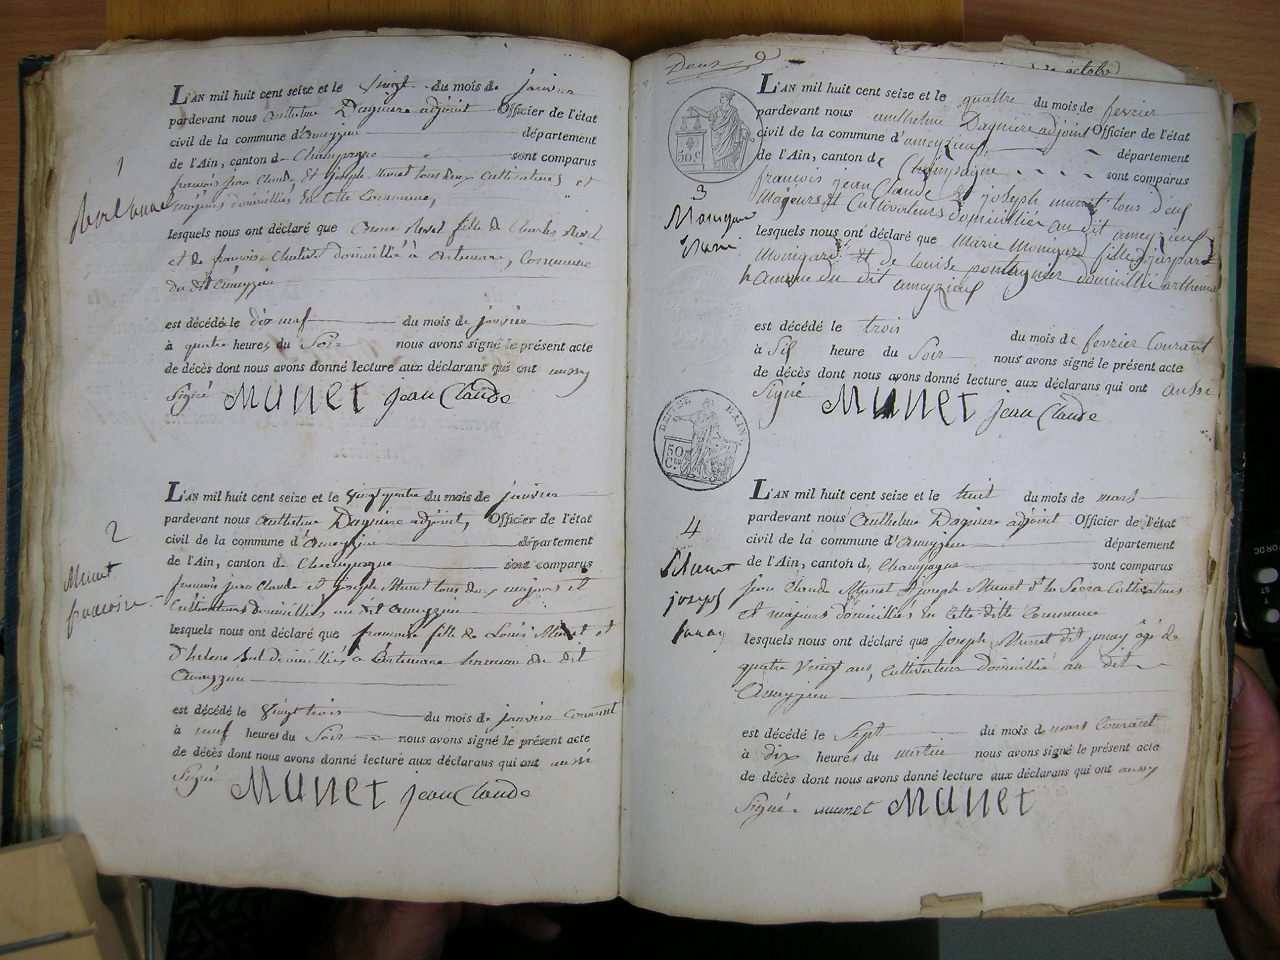 1
L'AN mil huit cent seize et le vingt du mois de janvier
pardevant nous anthelme Dagniere adjoint Officier de l'état
civil de la commune d'ameyzieu département
de l'Ain, canton de Champagne sont comparus
françois jean Claude et joseph Munet tous deux Cultivateurs et
majeurs domiciliés en cette Commune,
lesquels nous ont déclaré que fille de Charles
et de françoise domicilié à artemare, Commune
du dit ameyzieu
est décédé le dix neuf du mois de janvier
à quatre heures du Soir nous avons signé le présent acte
de décès dont nous avons donné lecture aux déclarans qui ont aussy
Signé Munet jean Claude
2
Munet
françoise
L'AN mil huit cent seize et le vingt quatre du mois de janvier
pardevant nous anthelme Dagniere adjoint, Officier de l'état
civil de la commune d'ameyzieu département
de l'Ain, canton de Champagne sont comparus
françois jean Claude et joseph Munet tous deux majeurs et
Cultivateurs domiciliés au dit ameyzieu
lesquels nous ont déclaré que françoise fille de Louis Munet et
d'helene domiciliés à artemare hameau du dit
ameyzieu
est décédé le vingt trois du mois de janvier courant
à neuf heures du Soir nous avons signé le présent acte
de décès dont nous avons donné lecture aux déclarans qui ont aussi
Signé Munet jean Claude
Deux
octobre
50 C.
3
Monigard
Marie
L'AN mil huit cent seize et le quattre du mois de fevrier
pardevant nous anthelme Dagniere adjoint Officier de l'état
civil de la commune d'ameyzieu département
de l'Ain, canton de Champagne sont comparus
françois jean Claude et joseph munet tous deux
Majeurs et Cultivateurs domiciliés au dit ameyzieu
lesquels nous ont déclaré que Marie Monigard fille
Monigard et de louise domicilié
hameau du dit ameyzieu
est décédé le trois du mois de fevrier Courant
à heure du Soir nous avons signé le présent acte
de décès dont nous avons donné lecture aux déclarans qui ont aussi
Signé Munet jean Claude
50 C.
4
Munet
joseph
L'AN mil huit cent seize et le huit du mois de mars
pardevant nous anthelme Dagniere adjoint Officier de l'état
civil de la commune d'ameyzieu département
de l'Ain, canton de Champagne sont comparus
jean Claude Munet et joseph Munet Cultivateurs
et majeurs domiciliés en cette dite Commune
lesquels nous ont déclaré que joseph Munet dit âgé de
quatre vingt ans, cultivateur domicilié au dit
ameyzieu
est décédé le Sept du mois de mars Courant
à dix heures du matin nous avons signé le présent acte
de décès dont nous avons donné lecture aux déclarans qui ont aussy
Signé munet Munet